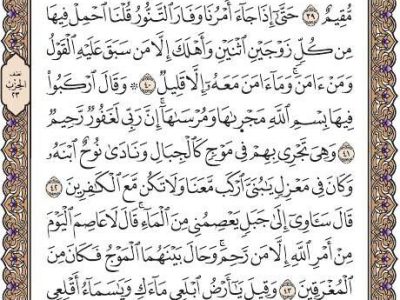 مُّقِيمٌ ٣٩ حَتَّىٰٓ إِذَا جَآءَ أَمْرُنَا وَفَارَ ٱلتَّنُّورُ قُلْنَا ٱحْمِلْ فِيهَا
مِن كُلٍّ زَوْجَيْنِ ٱثْنَيْنِ وَأَهْلَكَ إِلَّا مَن سَبَقَ عَلَيْهِ ٱلْقَوْلُ
وَمَنْ ءَامَنَ ۚ وَمَآ ءَامَنَ مَعَهُۥٓ إِلَّا قَلِيلٌ ٤٠ ۞ وَقَالَ ٱرْكَبُوا۟
فِيهَا بِسْمِ ٱللَّهِ مَجْر۪ىٰهَا وَمُرْسَىٰهَآ ۚ إِنَّ رَبِّى لَغَفُورٌ رَّحِيمٌ
٤١ وَهِىَ تَجْرِى بِهِمْ فِى مَوْجٍ كَٱلْجِبَالِ وَنَادَىٰ نُوحٌ ٱبْنَهُۥ
وَكَانَ فِى مَعْزِلٍ يَـٰبُنَىَّ ٱرْكَب مَّعَنَا وَلَا تَكُن مَّعَ ٱلْكَـٰفِرِينَ ٤٢
قَالَ سَـَٔاوِىٓ إِلَىٰ جَبَلٍ يَعْصِمُنِى مِنَ ٱلْمَآءِ ۚ قَالَ لَا عَاصِمَ ٱلْيَوْمَ
مِنْ أَمْرِ ٱللَّهِ إِلَّا مَن رَّحِمَ ۚ وَحَالَ بَيْنَهُمَا ٱلْمَوْجُ فَكَانَ مِنَ
ٱلْمُغْرَقِينَ ٤٣ وَقِيلَ يَـٰٓأَرْضُ ٱبْلَعِى مَآءَكِ وَيَـٰسَمَآءُ أَقْلِعِى
نصف
الحزب
٢٣